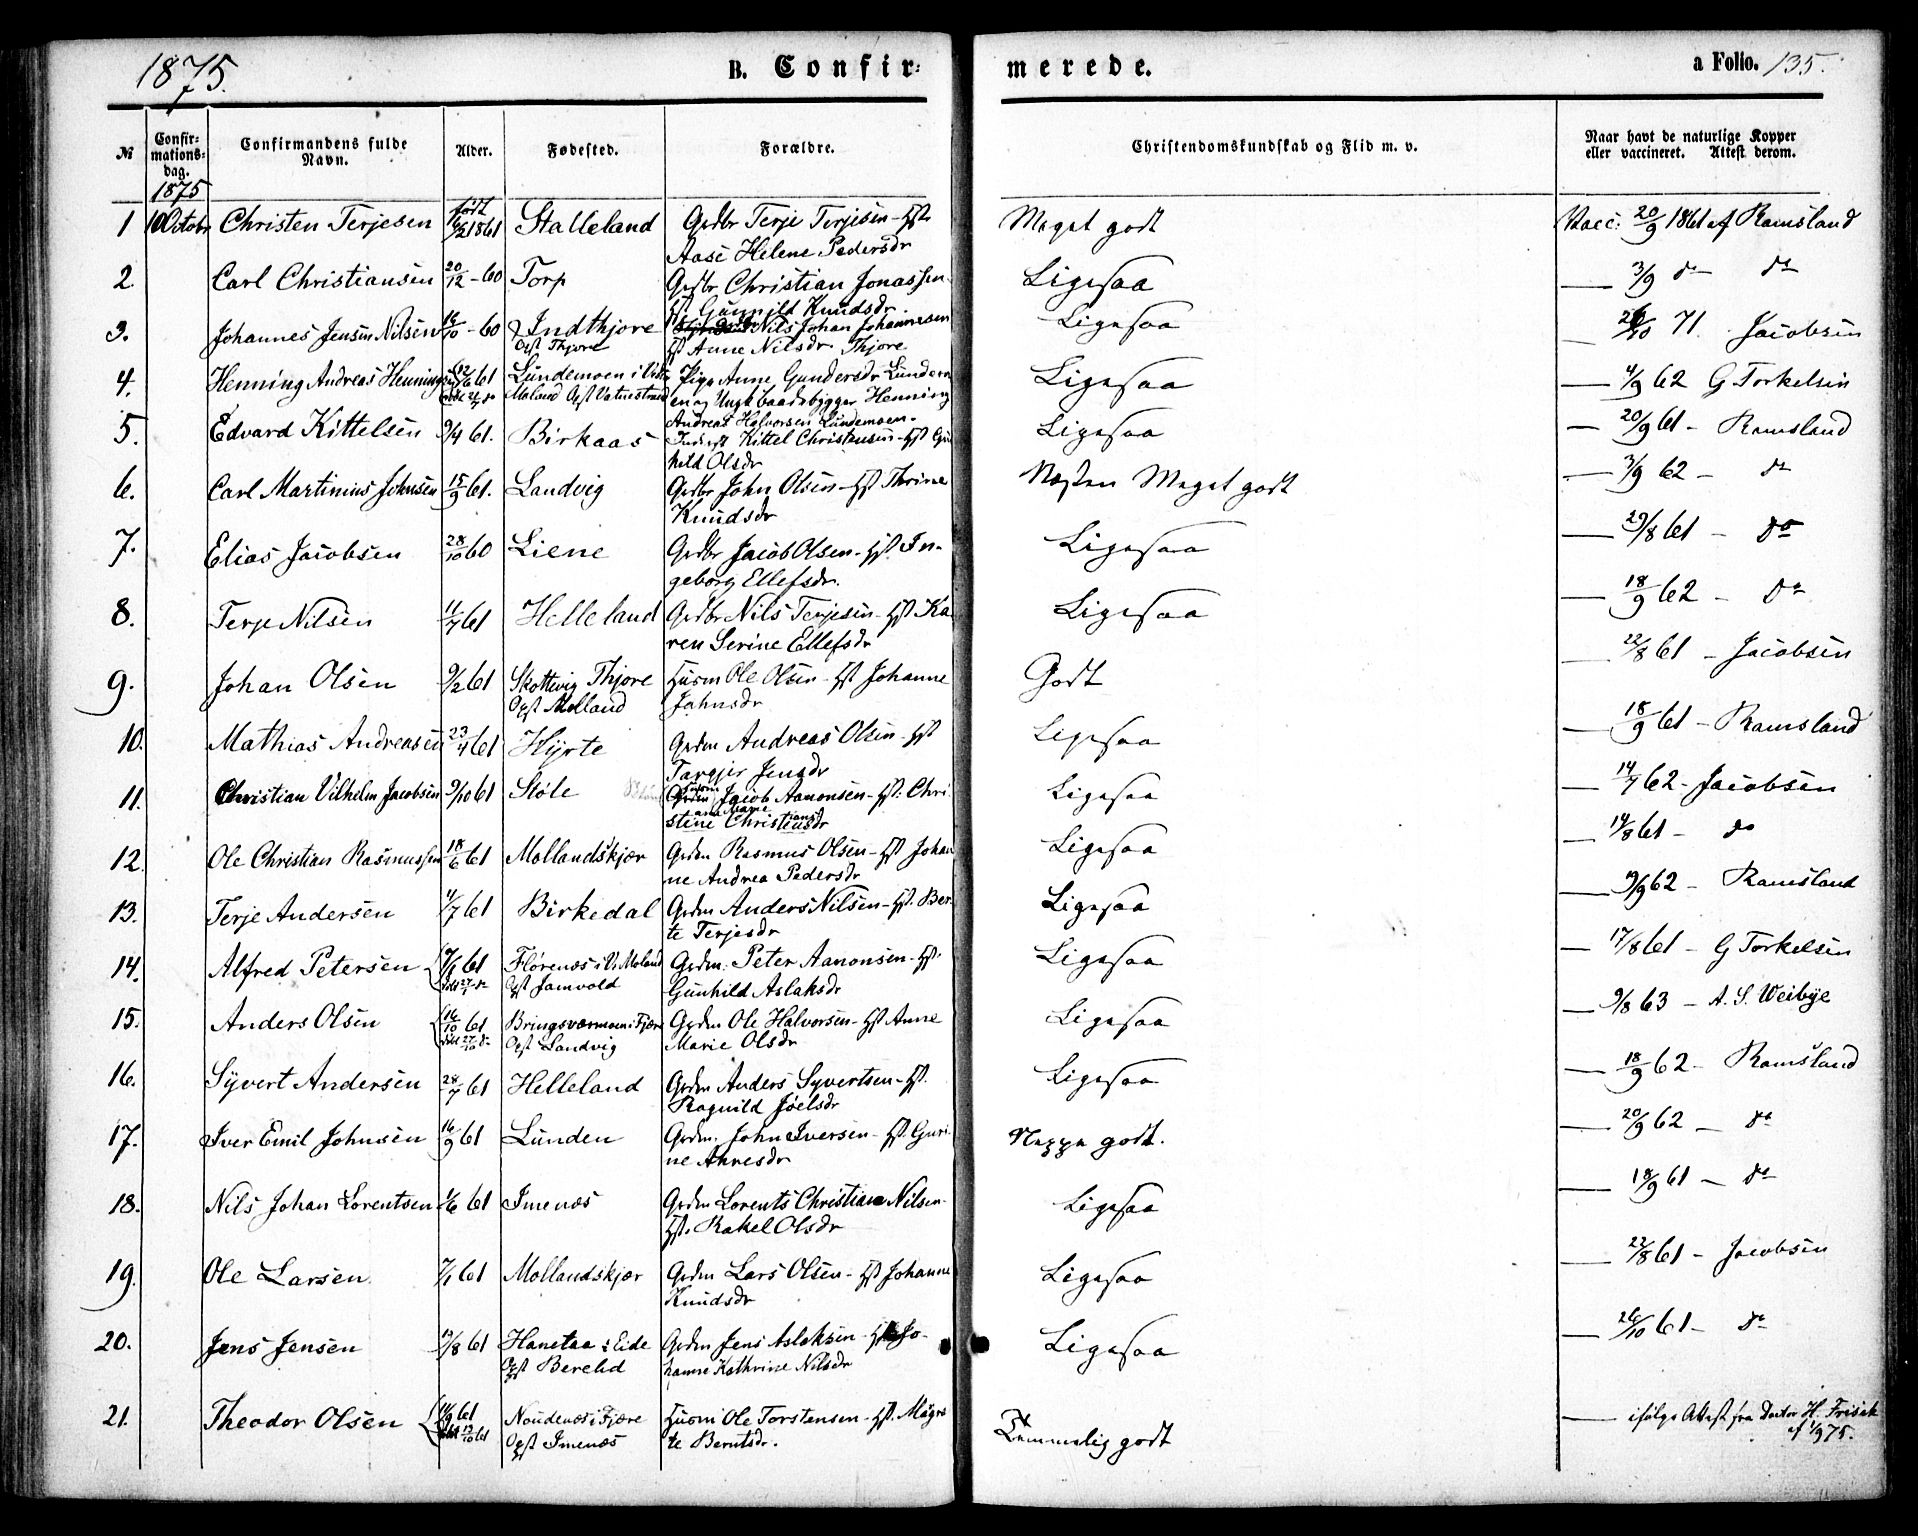 1875.
B. Confir-
merede.
a Folio. 135.
№
Confir-
mations-
dag.
Confirmandens fulde
Navn.
Alder.
Fødested.
Forældre.
Christendomskundskab og Flid m. v.
Naar havt de naturlige Kopper
eller vaccineret. Attest derom.
1875
1 10 Octobr Christen Terjesen født 1861 Stalleland Grdbr Terje Terjesen - Hst.
Aase Helene Pedersdr
Meget godt
Vacc: 20/9 1861 af Ramsland
2. Carl Christiansen 20/12 - 60 Torp Grdbr Christian Jonassen
Hst. Gunnild Knudsdr
Ligesaa
3/9 do do
3. Johannes Jensen Nilsen 16/10 - 60 Indthjore Nils Johan Johannesen
Opst Thjore Hst Anne Nilsdr Thjore
Ligesaa
26/10 71. Jacobsen
4. Henning Andreas Henningsen 61 Lundemoen i Vestre Pige Anne Gundersdr Lundem
Moland Opst Vatnestrand en og Ungk baadsbygger Henning
Andreas Halvorsen Lundemoen.
Ligesaa
4/9 62 G Torkelsen
5. Edvard Kittelsen 9/4 61. Birkaas Kittel Christensen - Hst Gu
hild Olsdr
Ligesaa
20/9 61 - Ramsland
6. Carl Martinius Johnsen 15/9 61. Landvig Grdbr John Olsen - Hst Thrine
Knudsdr
Næsten Meget godt
3/9 62 - do
7. Elias Jacobsen 28/10 60 Liene Grdbr Jacob Olsen - Hst. In-
geborg Ellefsdr.
Ligesaa
29/8 61 - do
8. Terje Nilsen 11/7 61 Helleland Grdbr Nils Terjesen - Hst Ka
ren Serine Ellefsdr
Ligesaa
18/9 62 - do
9. Johan Olsen 9/2 61 Skottevig Thjore Husm Ole Olsen - Hst Johanne
Opst Molland Johnsdr
Godt
22/8 61 - Jacobsen
10. Mathias Andreasen 23/4 61 Hyrte Grdm Andreas Olsen - Hst
Targjer Jensdr
Ligesaa
18/9 61 - Ramsland
11. Christian Vilhelm Jacobsen 9/10 61 Støle Husm Grdm Jacob Aanonsen - Hst. Chri-
stine Christiansdr
Ligesaa
14/7 62 - Jacobsen
12. Ole Christian Rasmussen 18/6 61 Mollandskjær Grdm Rasmus Olsen - Hst Johan
ne Andrea Pedersdr
Ligesaa
14/8 61 - do
13. Terje Andersen 4/7 61 Birkedal Grdm Anders Nilsen - Hst. Ber-
te Terjesdr
Ligesaa
19/9 62 - Ramsland
14. Alfred Petersen 7/1 61 Florenæs i V. Moland Grdm. Peter Aanonsen - Hst.
Opst Jamvold Gunhild Aslaksdr
Ligesaa
17/8 61 - G Torkelsen
15. Anders Olsen 16/10 61 Bringsværmoen i Fjære Grdm Ole Halvorsen - Hst Anne
Opst Landvig Marie Olsdr
Ligesaa
9/8 63 - A. S. Weibye
16. Syvert Andersen 28/7 61 Helleland Grdm Anders Syvertsen - Hst.
Ragnild Joelsdr
Ligesaa
18/9 62 - Ramsland
17. Iver Emil Johnsen 16/9 61 Lunden Grdm. John Iversen - Hst. Guri-
ne Annesdr
Neppe godt.
20/9 62 - do
18. Nils Johan Lorentsen 1/6 61 Imenæs Grdm Lorents Christian Nilsen
Hst. Rakel Olsdr
Ligesaa
18/9 61 - do
19. Ole Larsen 7/1 61 Mollandskjær Grdm Lars Olsen - Hst Johanne
Knudsdr
Ligesaa
22/8 61 - Jacobsen
20. Jens Jensen 19/8 61 Hanetaa i Eide Grdm Jens Aslaksen - Hst Jo-
Opst Berelid hanne Kathrine Nilsdr
Ligesaa
26/10 61 - do
21. Theodor Olsen 61 Noudenæs i Fjære Husm Ole Torstensen - Hst. Magre
Opst Imenæs te Berntsdr.
Temmelig godt
ifølge Attest fra Doctor H. Frisak
af 1/9 75.